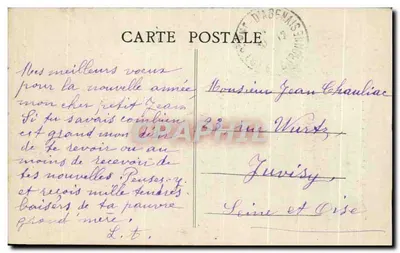 CARTE POSTALE
Mes meilleurs voeux
pour la nouvelle année
mon cher petit Jean
Si tu savais combien
est grand mon désir
de te revoir ou au
moins de recevoir de
tes nouvelles. Penses-y
et reçois mille tendres
baisers de ta pauvre
grand'mère.
L. T.
Monsieur Jean Chauliac
22 rue Wurtz
Juvisy
Seine et Oise